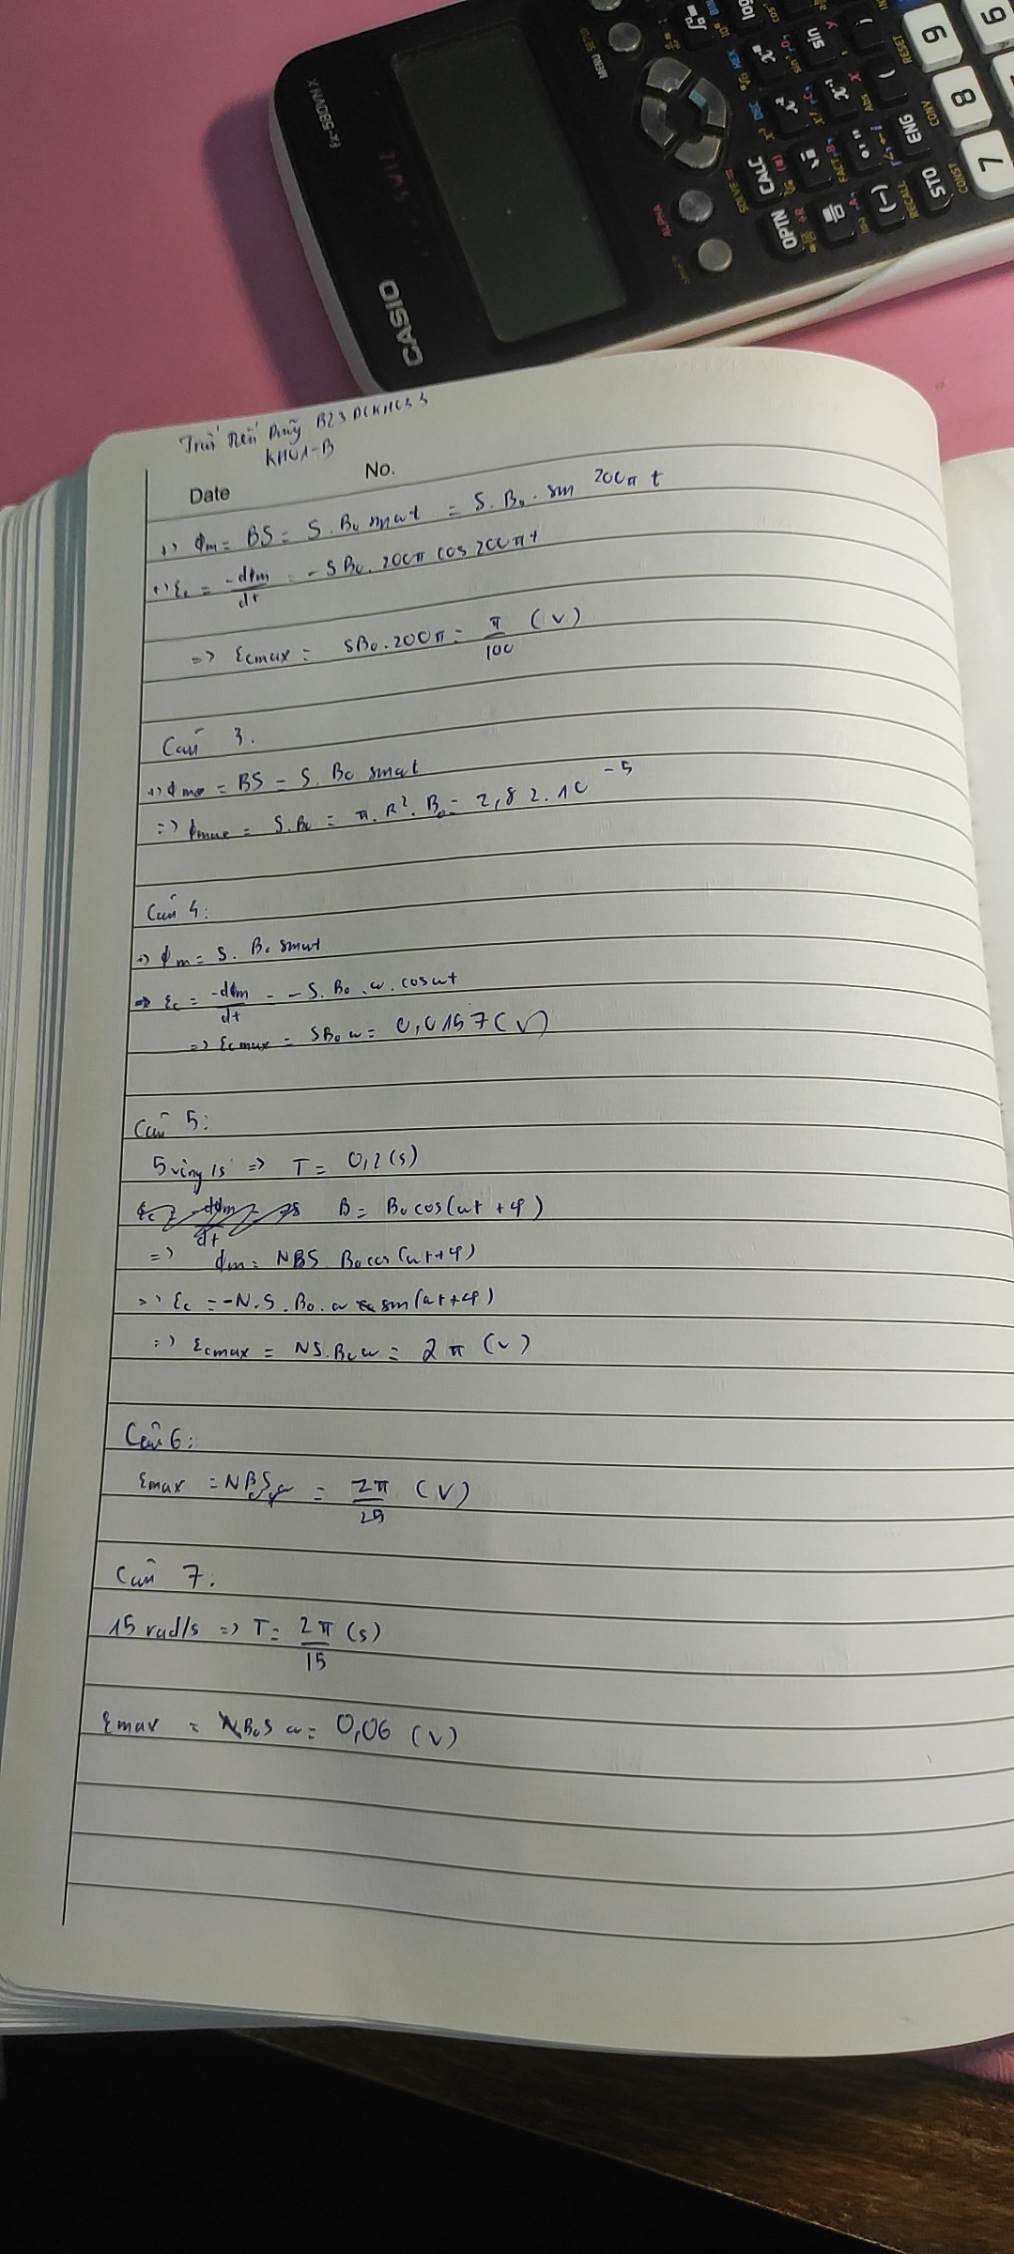 CASIO
fx-580VN X
MENU SETUP
ALPHA
OPTN CALC
SOLVE =
STO ENG
RECALL
CONST CONV RESET
(-)
sin
log
7 8 9
6
B23DCKH033
KHOA-B
Date No.
+) ϕm = BS = S. B₀ sinωt = S. B₀. sin 200π t
+) Ec = -dϕm/dt = - SB₀. 200π cos 200πt
=> Ecmax = SB₀.200π = π/100 (V)
Câu 3.
+) ϕm = BS = S. B₀ sinωt
=> ϕmax = S.B₀ = π. R². B₀ = 2,82.10⁻⁵
Câu 4:
=> ϕm = S. B₀ sinωt
=> Ec = -dϕm/dt = - S. B₀ .ω. cosωt
=> Ecmax = SB₀ω = 0,0157 (V)
Câu 5:
5 vòng 1s => T = 0,2 (s)
B = B₀ cos(ωt + φ)
=> ϕm = NBS B₀ cos(ωt+φ)
=> Ec = -N.S. B₀. ω sin(ωt+φ)
=> Ecmax = NS.B₀ω = 2π (V)
Câu 6:
Emax = NBSω = 2π/25 (V)
Câu 7:
15 rad/s => T = 2π/15 (s)
Emax = B₀S ω = 0,06 (V)